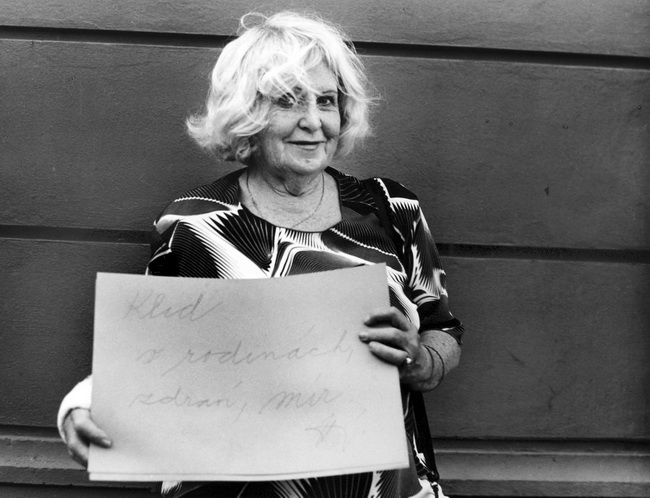 Klid
v rodinách,
zdraví, mír